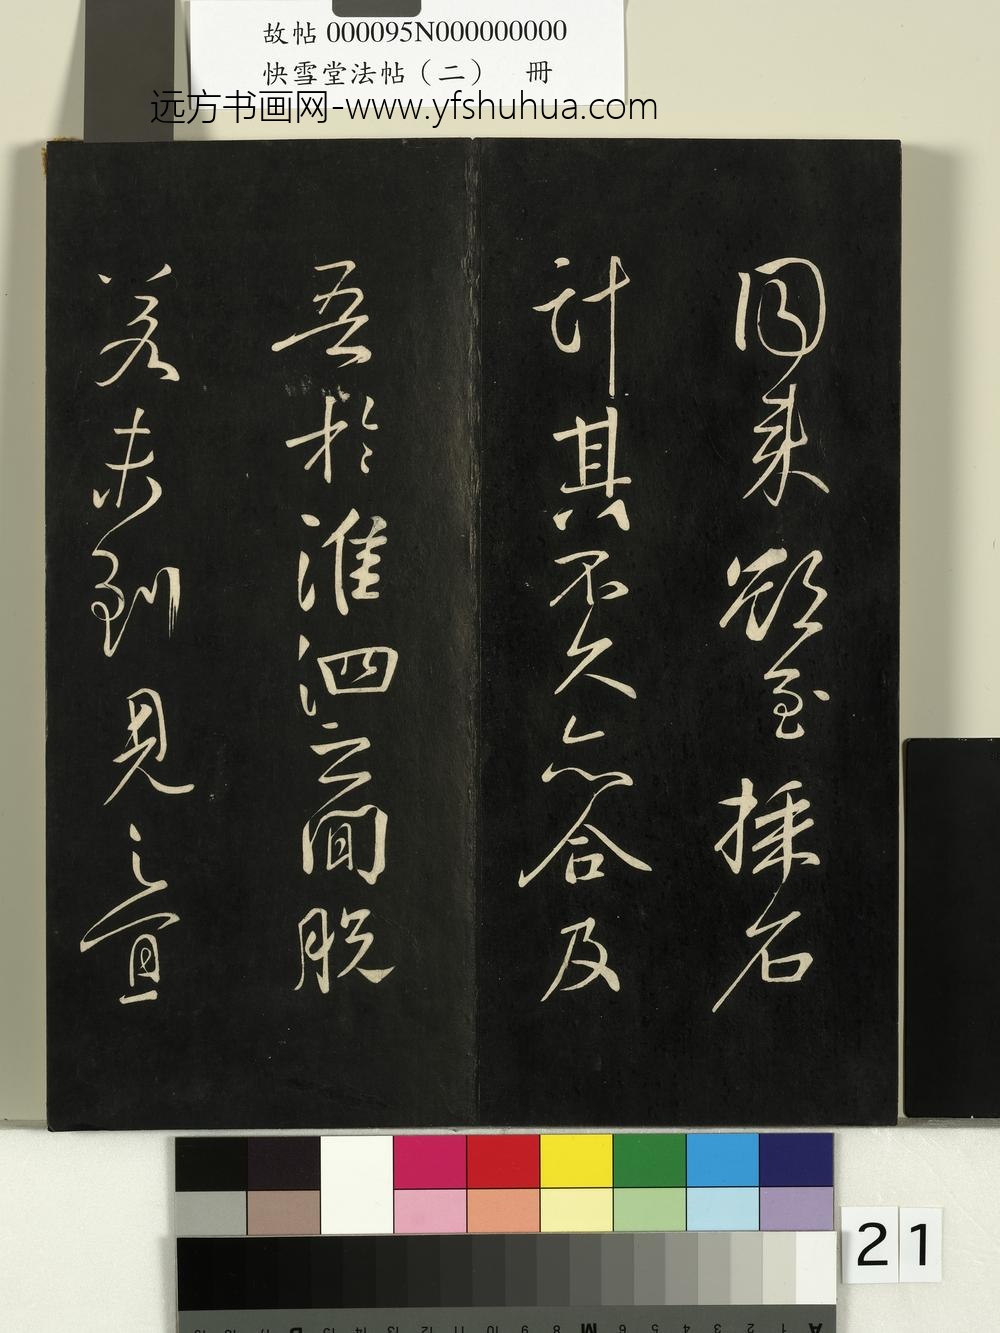 故帖 000095N000000000
快雪堂法帖（二） 冊
远方书画网-www.yfshuhua.com
因来欲至採石
計其不久亦合及
吾於淮泗之間脫
若未到見之宜
21